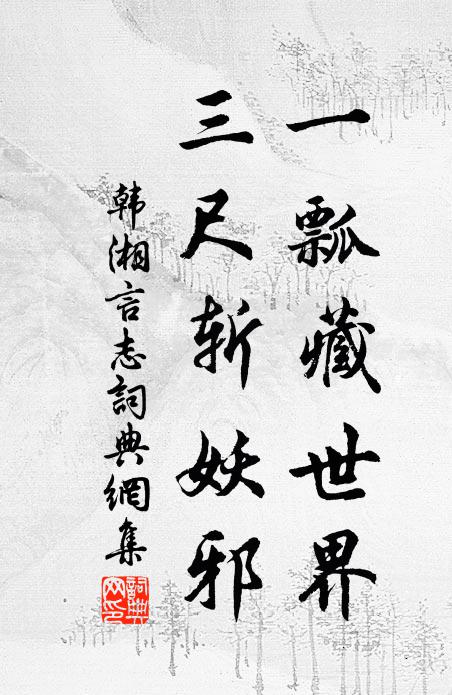 一瓢藏世界
三尺斩妖邪
韩湘言志詞典網集
詞典